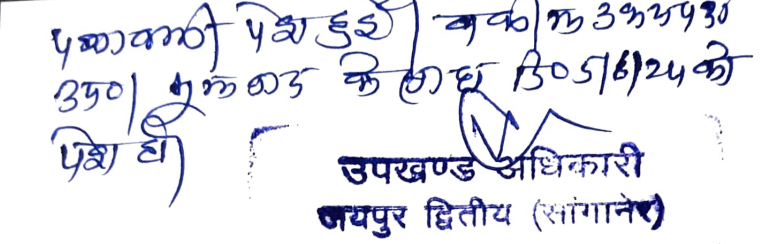 पत्रावली पेश हुई। वकील उभयपक्ष
उप0। मूल वाद के साथ दि0 5/6/24 को
पेश हो।
उपखण्ड अधिकारी
जयपुर द्वितीय (सांगानेर)